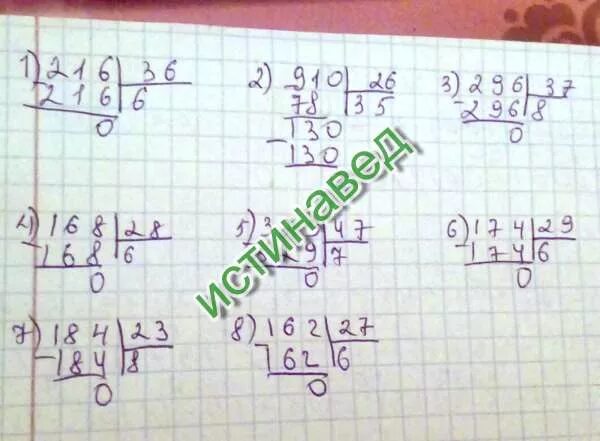 1) 216 36
- 216 6
0
2) 910 26
78 35
130
- 130
3) 296 37
- 296 8
0
4) 168 28
- 168 6
0
5) 3 47
29 7
0
6) 174 29
- 174 6
0
7) 184 23
- 184 8
0
8) 162 27
- 162 6
0
истинавед